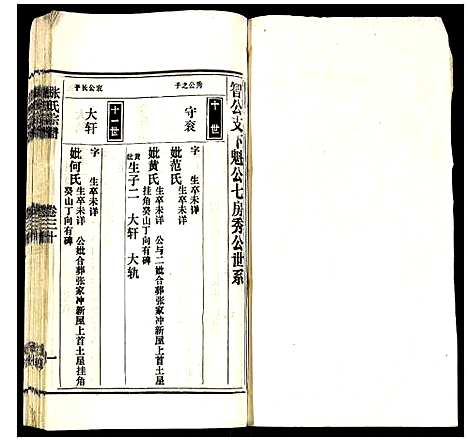 智公支下魁公七房秀公世系
十世
秀公之子
守衮
字 生卒未详
妣范氏 生卒未详
妣黄氏 生卒未详 公与二妣合葬张家冲新屋上首土屋
挂角癸山丁向有碑
黄妣生子二 大轩 大轨
十一世
衮公长子
大轩
字 生卒未详
妣何氏 生卒未详 公妣合葬张家冲新屋上首土屋挂角
癸山丁向有碑
张氏宗谱
卷三十
一